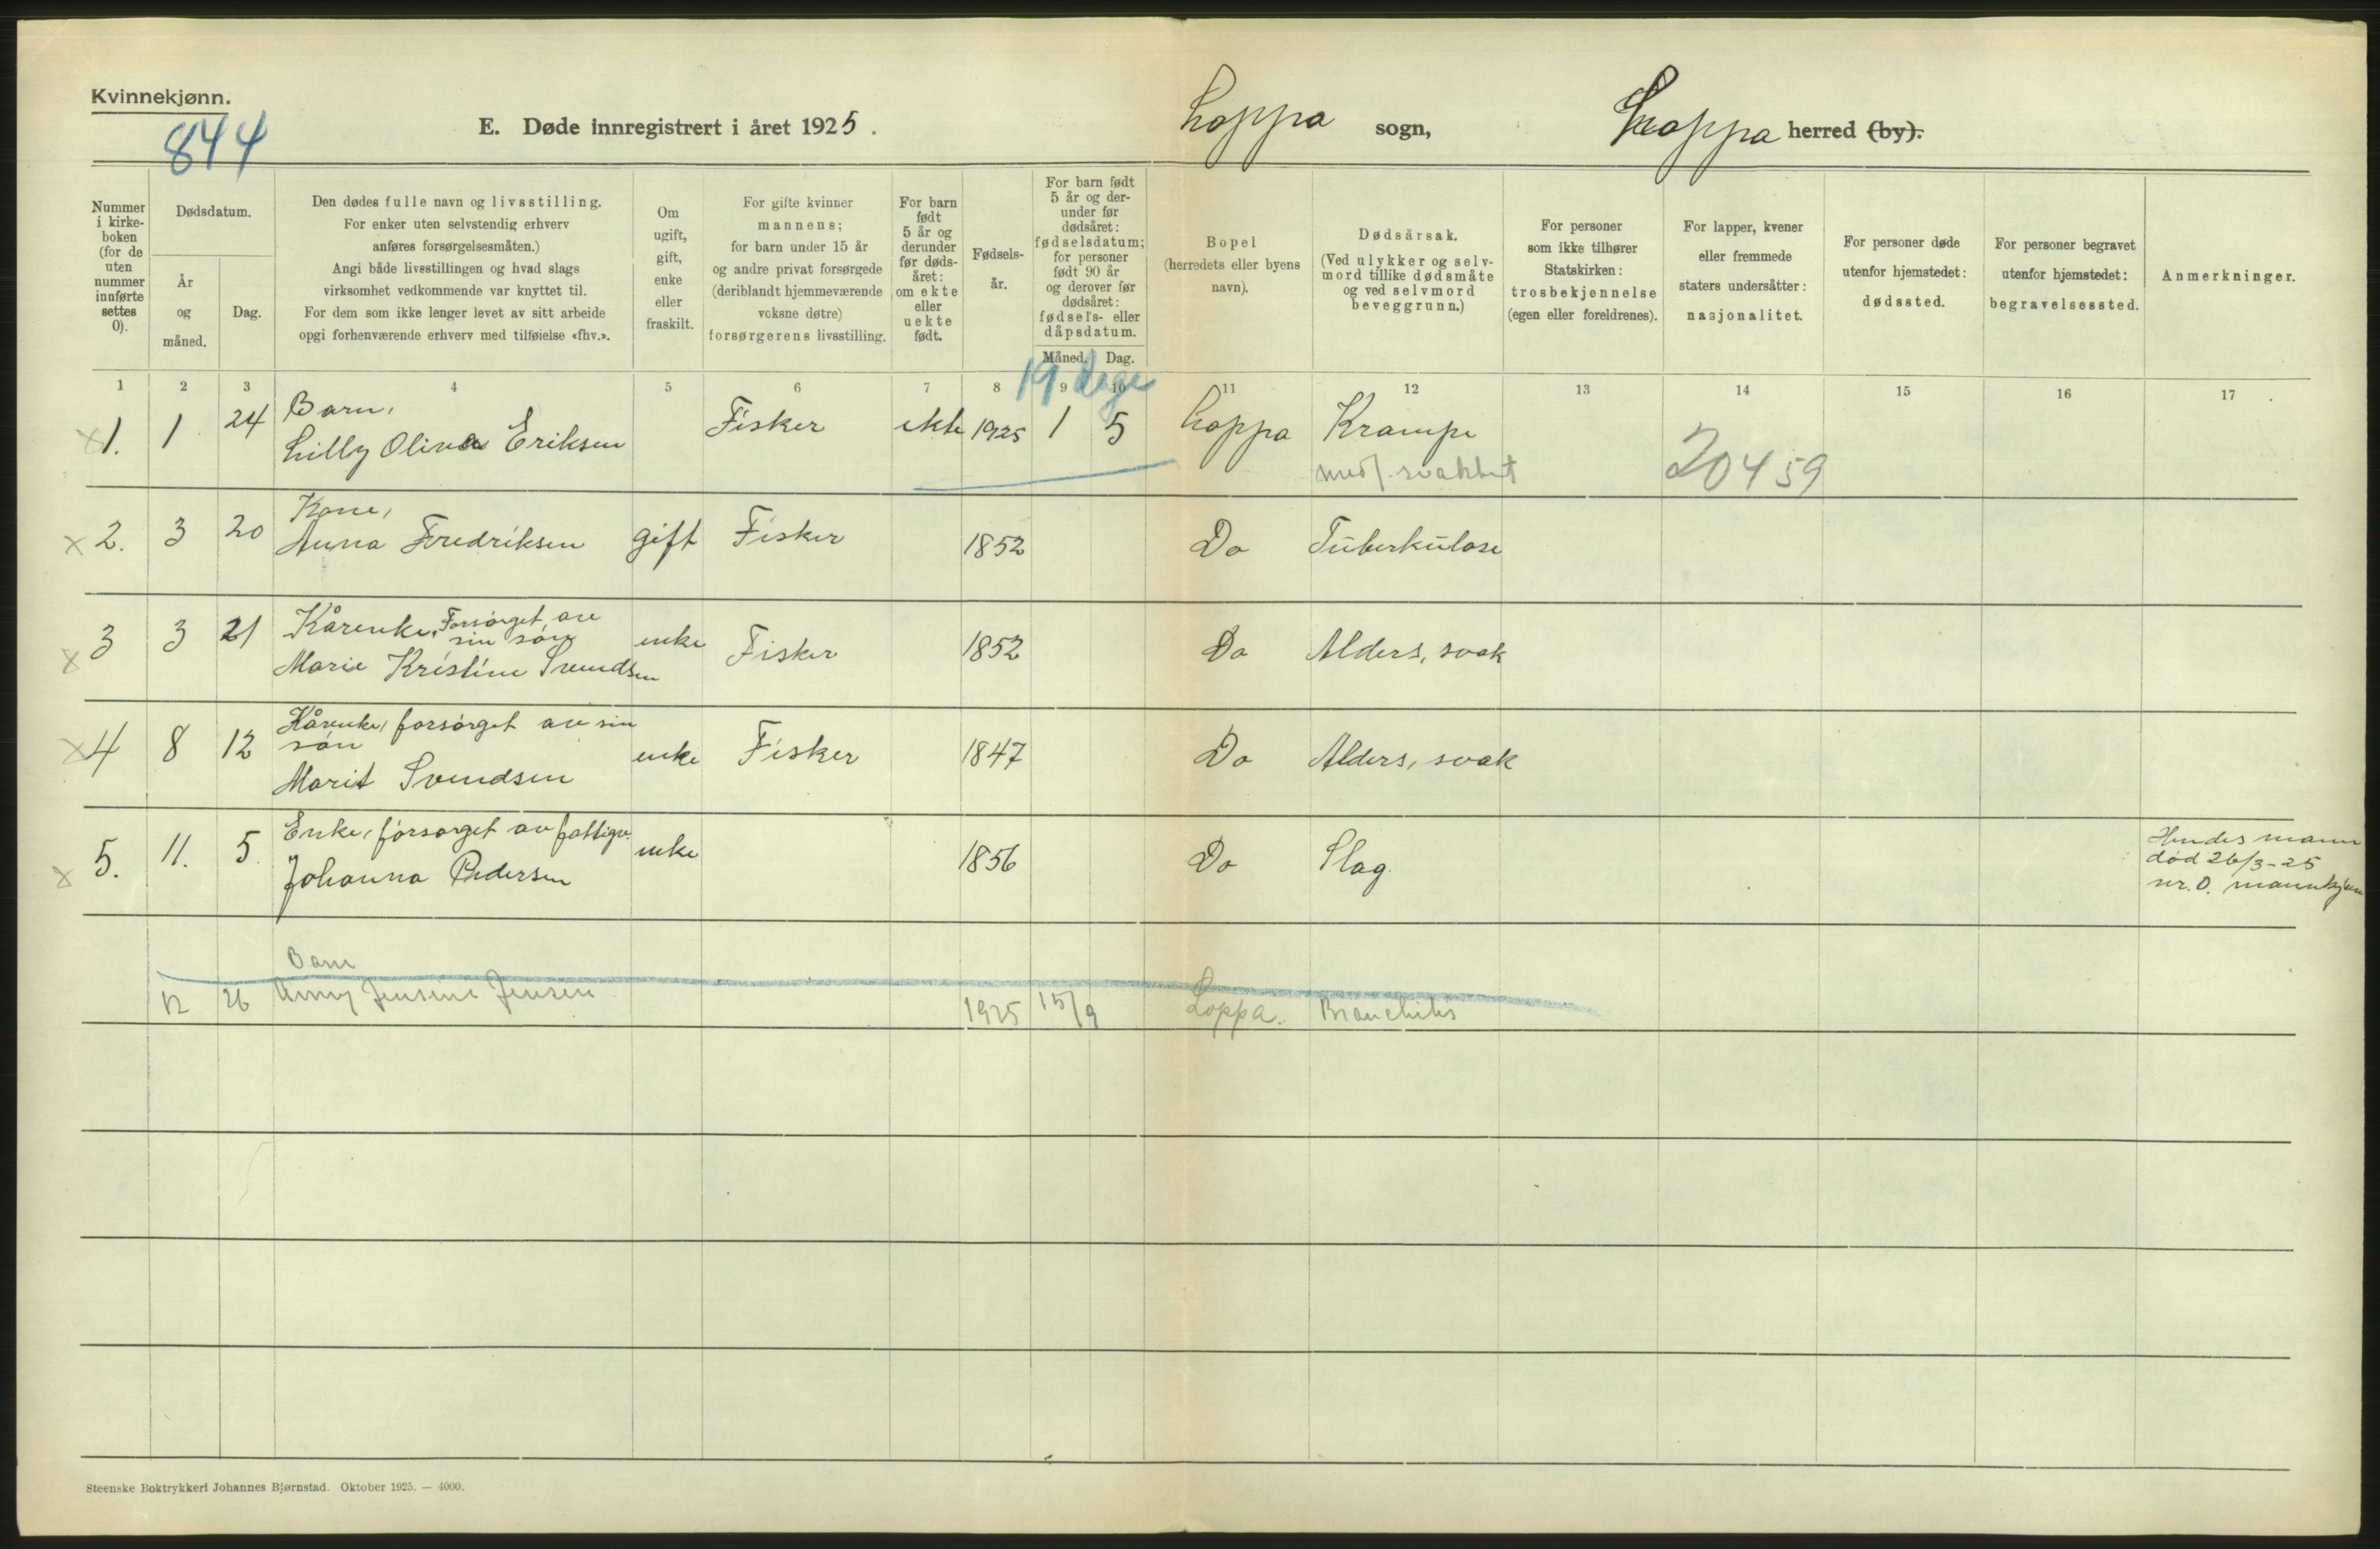 Kvinnekjønn.
844
E. Døde innregistrert i året 1925.
Loppa sogn,
Loppa herred (by).
Nummer i kirke-boken (for de uten nummer innførte settes 0).
Dødsdatum.
År og måned.
Dag.
Den dødes fulle navn og livsstilling.
For enker uten selvstendig erhverv
anføres forsørgelsesmåten.)
Angi både livsstillingen og hvad slags
virksomhet vedkommende var knyttet til.
For dem som ikke lenger levet av sitt arbeide
opgi forhenværende erhverv med tilføielse «fhv.».
Om ugift, gift, enke eller fraskilt.
For gifte kvinner
mannens;
for barn under 15 år
og andre privat forsørgede
(deriblandt hjemmeværende
voksne døtre)
forsørgerens livsstilling.
For barn født 5 år og derunder før døds-året: om ekte eller uekte født.
Fødsels-år.
For barn født 5 år og der-under før dødsåret: fødselsdatum; for personer født 90 år og derover før dødsåret: fødsels- eller dåpsdatum.
Måned. Dag.
Bopel
(herredets eller byens
navn).
Dødsårsak.
(Ved ulykker og selv-
mord tillike dødsmåte
og ved selvmord
beveggrunn.)
For personer
som ikke tilhører
Statskirken:
trosbekjennelse
(egen eller foreldrenes).
For lapper, kvener
eller fremmede
staters undersåtter:
nasjonalitet.
For personer døde
utenfor hjemstedet:
dødssted.
For personer begravet
utenfor hjemstedet:
begravelsessted.
Anmerkninger.
1 2 3 4 5 6 7 8 9 10 11 12 13 14 15 16 17
19 dage
Barn,
x 1. 1 24 Lilly Oliva Eriksen Fisker ekte 1925 1 5 Loppa Krampe
medf. svakhet 20459
Kone,
x 2. 3 20 Anna Fredriksen gift Fisker 1852 Do Tuberkulose
Kårenke, Forsørget av
sin søn
x 3 3 21 Marie Kristine Svendsen enke Fisker 1852 Do Alders, svak
Kårenke, forsørget av sin
søn
x 4 8 12 Marit Svendsen enke Fisker 1847 Do Alders, svak
Enke, forsørget av fattigv.
x 5. 11. 5. Johanna Pedersen enke 1856 Do Slag.
Hendes mann
død 26/3-25
nr. 0. mannkjønn
Barn
12 26 Anny Jensine Jensen 1925 15/9 Loppa. Bronchitis
Steenske Boktrykkeri Johannes Bjørnstad. Oktober 1925. — 4000.